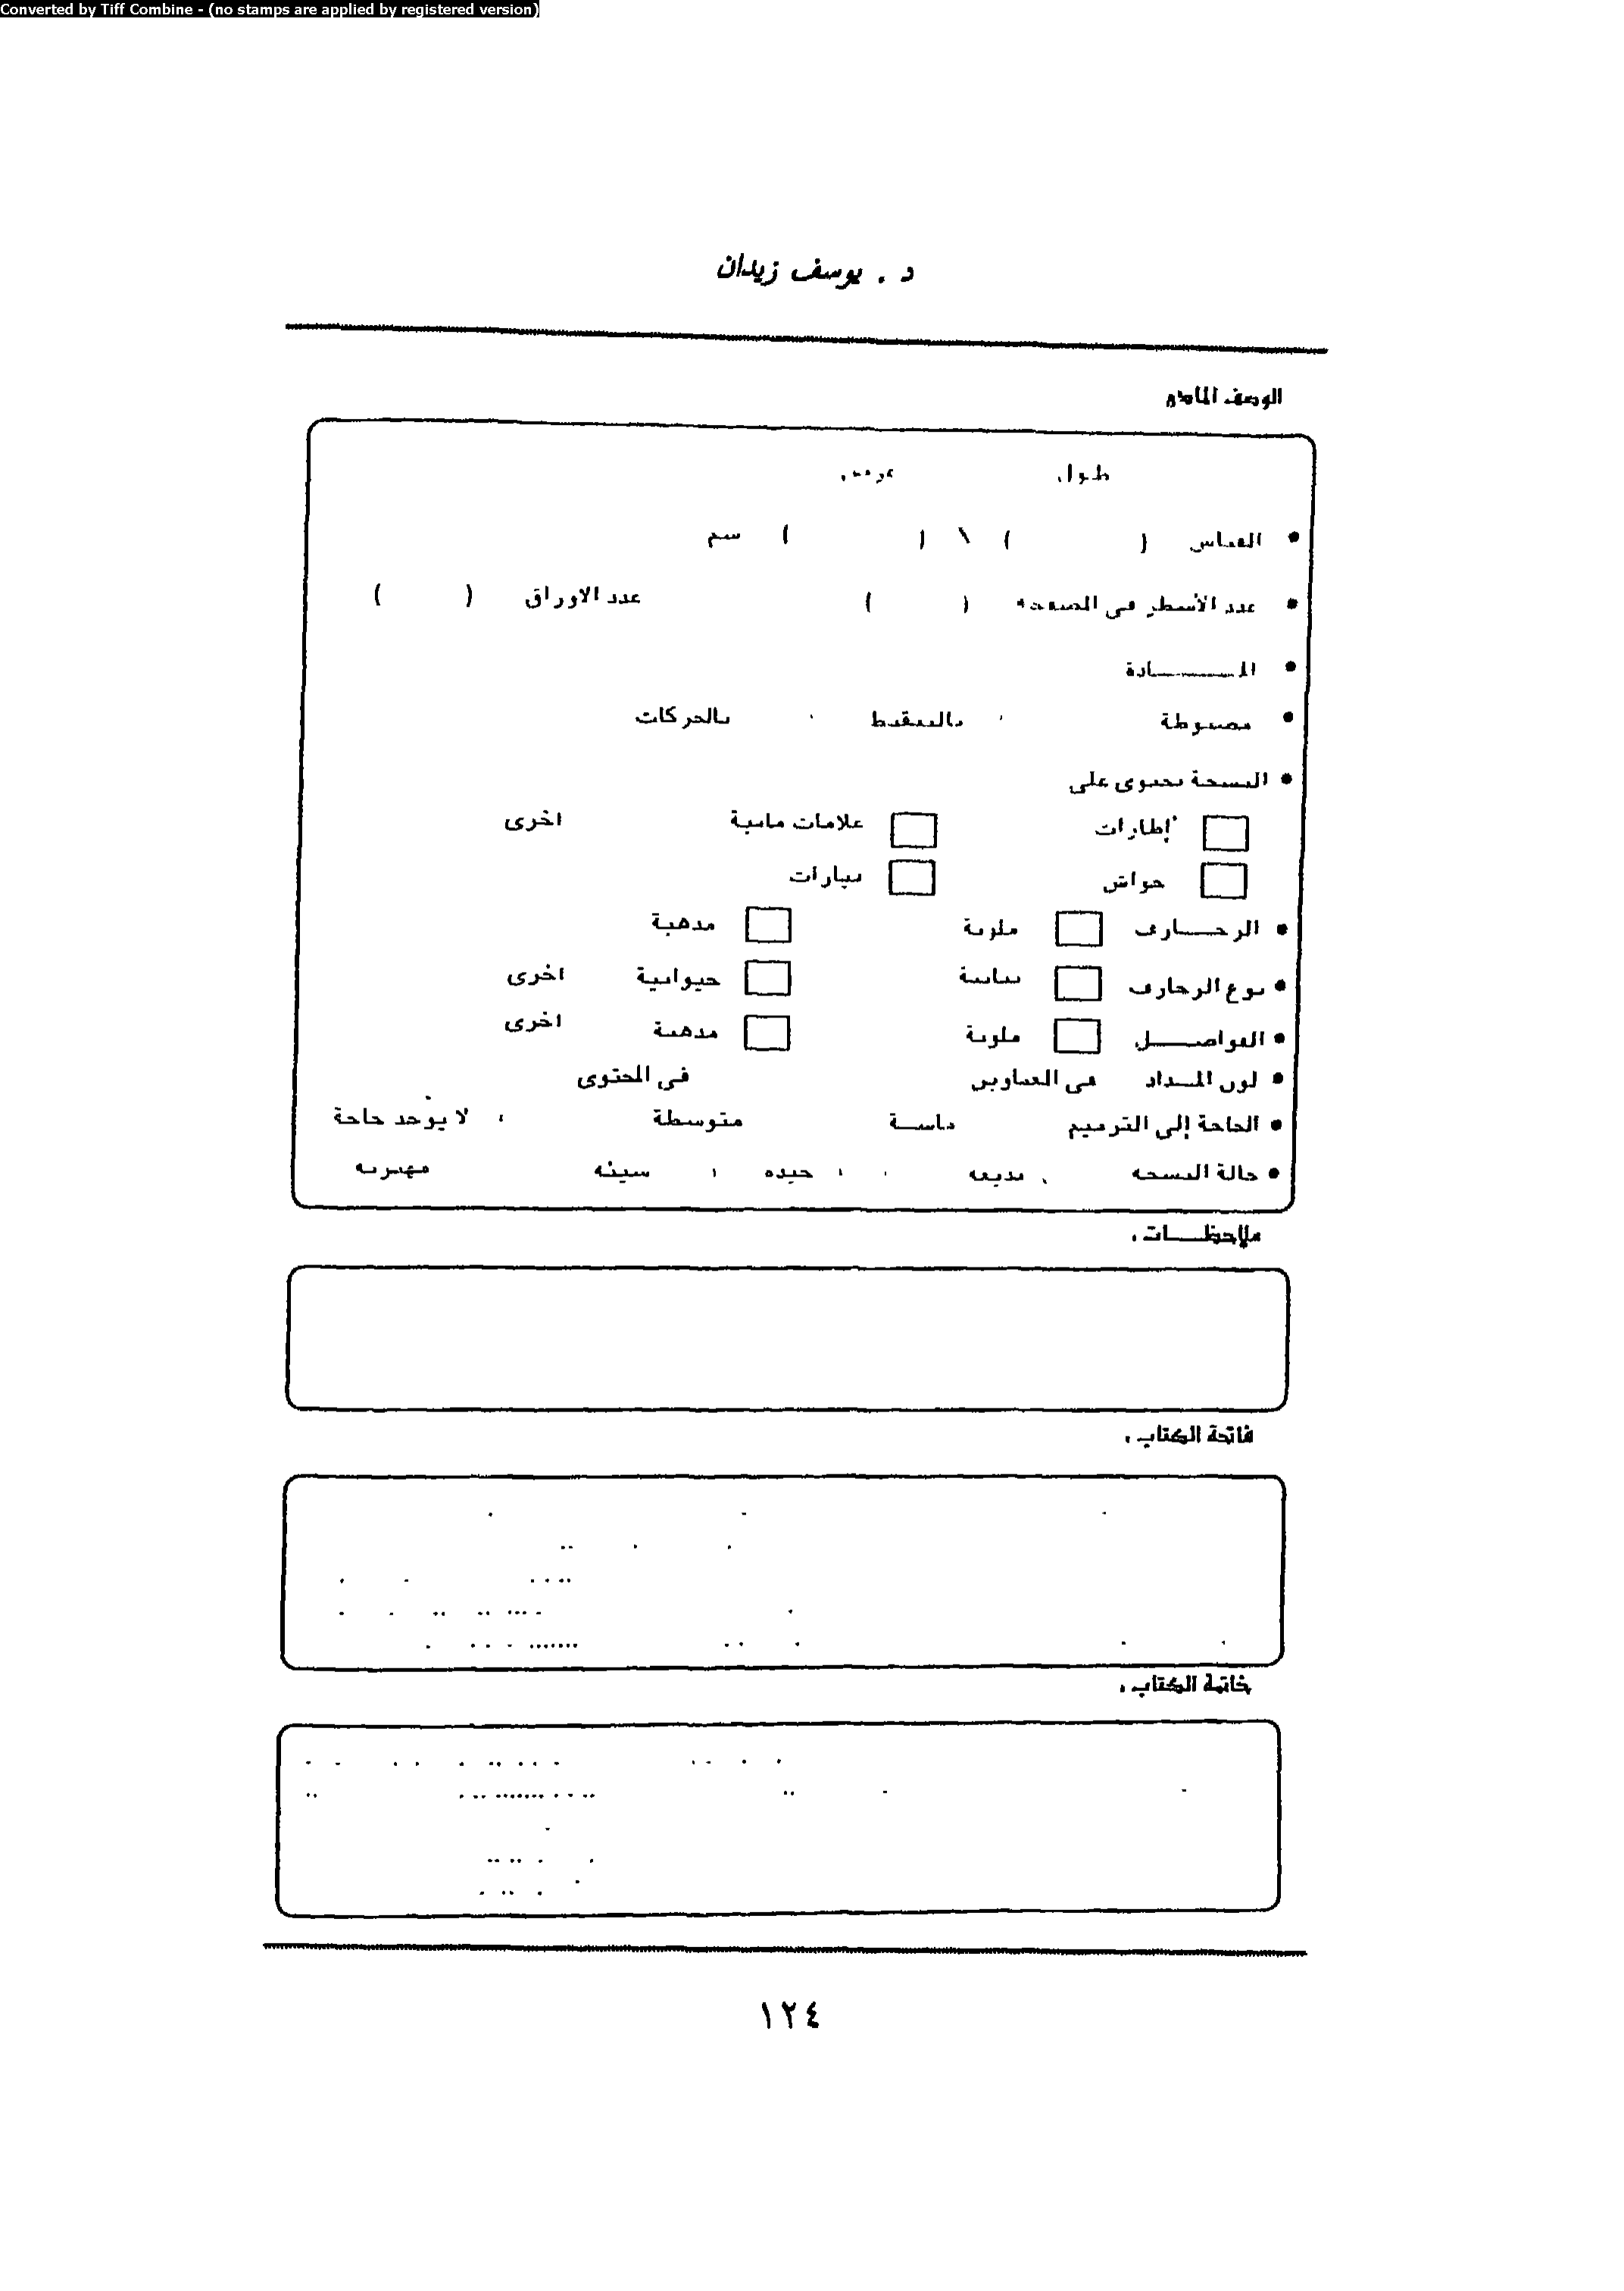 Converted by Tiff Combine - (no stamps are applied by registered version)
د . يوسف زيدان
الوصف المادى
طول عرض
• القياس ( ) \ ( ) سم
• عدد الأسطر فى الصفحة ( ) عدد الاوراق ( )
• المـــــــادة
• مضبوطة بالتنقيط بالحركات
• النسخة تحتوى على
إطارات علامات مائية اخرى
حواش بيارات
• الزخــــارف ملونة مذهبة
• نوع الزخارف نباتية حيوانية اخرى
• الفواصــــل ملونة مذهبة اخرى
• لون المــداد فى العناوين فى المحتوى
• الحاجة إلى الترميم ماســة متوسطة لا يوجد حاجة
• حالة النسخه بديعه جيده سيئه مهترئه
ملاحظــــات .
فاتحة الكتاب .
خاتمة الكتاب .
١٢٤